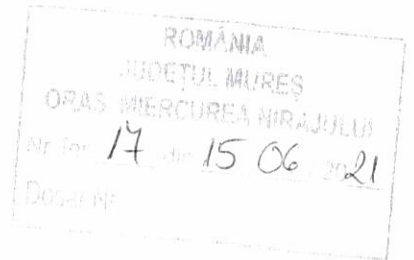 ROMÂNIA
JUDEȚUL MUREȘ
ORAȘ MIERCUREA NIRAJULUI
Nr. 17 din 15 06 2021
Dosar Nr